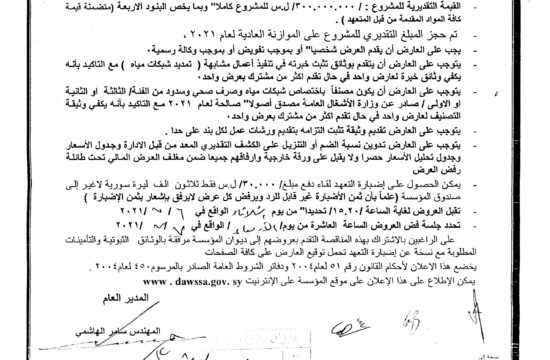 القيمة التقديرية للمشروع : /٣٠٠,٠٠٠,٠٠٠/ ل.س للمشروع كاملاً" وبما يخص البنود الاربعة (متضمنة قيمة
كافة المواد المقدمة من قبل المتعهد) .
- تم حجز المبلغ التقديري للمشروع على الموازنة العادية لعام ٢٠٢١ .
يجب على العارض أن يقدم العرض شخصياً" أو بموجب تفويض أو بموجب وكالة رسمية.
يتوجب على العارض أن يتقدم بوثائق تثبت خبرته في تنفيذ أعمال مشابهة ( تمديد شبكات مياه ) مع التأكيد بأنه
يكفي وثائق خبرة لعارض واحد في حال تقدم اكثر من مشترك بعرض واحد.
يتوجب على العارض أن يكون مصنفاً باختصاص شبكات مياه وصرف صحي وسدود من الفئة/ الثالثة او الثانية
او الاولى / صادر عن وزارة الأشغال العامة مصدق أصولاً" صالحة لعام ٢٠٢١ مع التاكيد بأنه يكفي وثيقة
التصنيف لعارض واحد في حال تقدم اكثر من مشترك بعرض واحد.
يتوجب على العارض تقديم وثيقة تثبت التزامه بتقديم ورشات عمل لكل بند على حدا .
يتوجب على العارض تدوين نسبة الضم أو التنزيل على الكشف التقديري المعد من قبل الادارة وجدول الأسعار
وجدول تحليل الأسعار حصرا ولا يقبل على ورقة خارجية وارفاقهم جميعا ضمن مغلف العرض المالي تحت طائلة
رفض العرض
يمكن الحصول على إضبارة التعهد لقاء دفع مبلغ/ ٣٠,٠٠٠/ ل.س فقط ثلاثون الف ليرة سورية لاغير إلى
صندوق المؤسسة (علماً بأن ثمن الإضبارة غير قابل للرد ويرفض كل عرض لايرفق بإشعار بثمن الإضبارة )
تقبل العروض لغاية الساعة /١٥.٢٠/ تحديدا" من يوم الواقع في / / ٢٠٢١
تحدد جلسة فض العروض الساعة العاشرة من يوم / الواقع في / / ٢٠٢١
على الراغبين بالاشتراك بهذه المناقصة التقدم بعروضهم إلى ديوان المؤسسة مرفقة بالوثائق الثبوتية والتأمينات
المطلوبة مع نسخة عن إضبارة التعهد تحمل توقيع العارض على كافة الصفحات
يخضع هذا الاعلان لأحكام القانون رقم ٥١ لعام ٢٠٠٤ ودفاتر الشروط العامة الصادر بالمرسوم ٤٥٠ لعام ٢٠٠٤
يمكن الإطلاع على هذا الإعلان على موقع المؤسسة الانترنيت www . dawssa.gov. sy
المدير العام
المهندس سامر الهاشمي
نسخة إلى